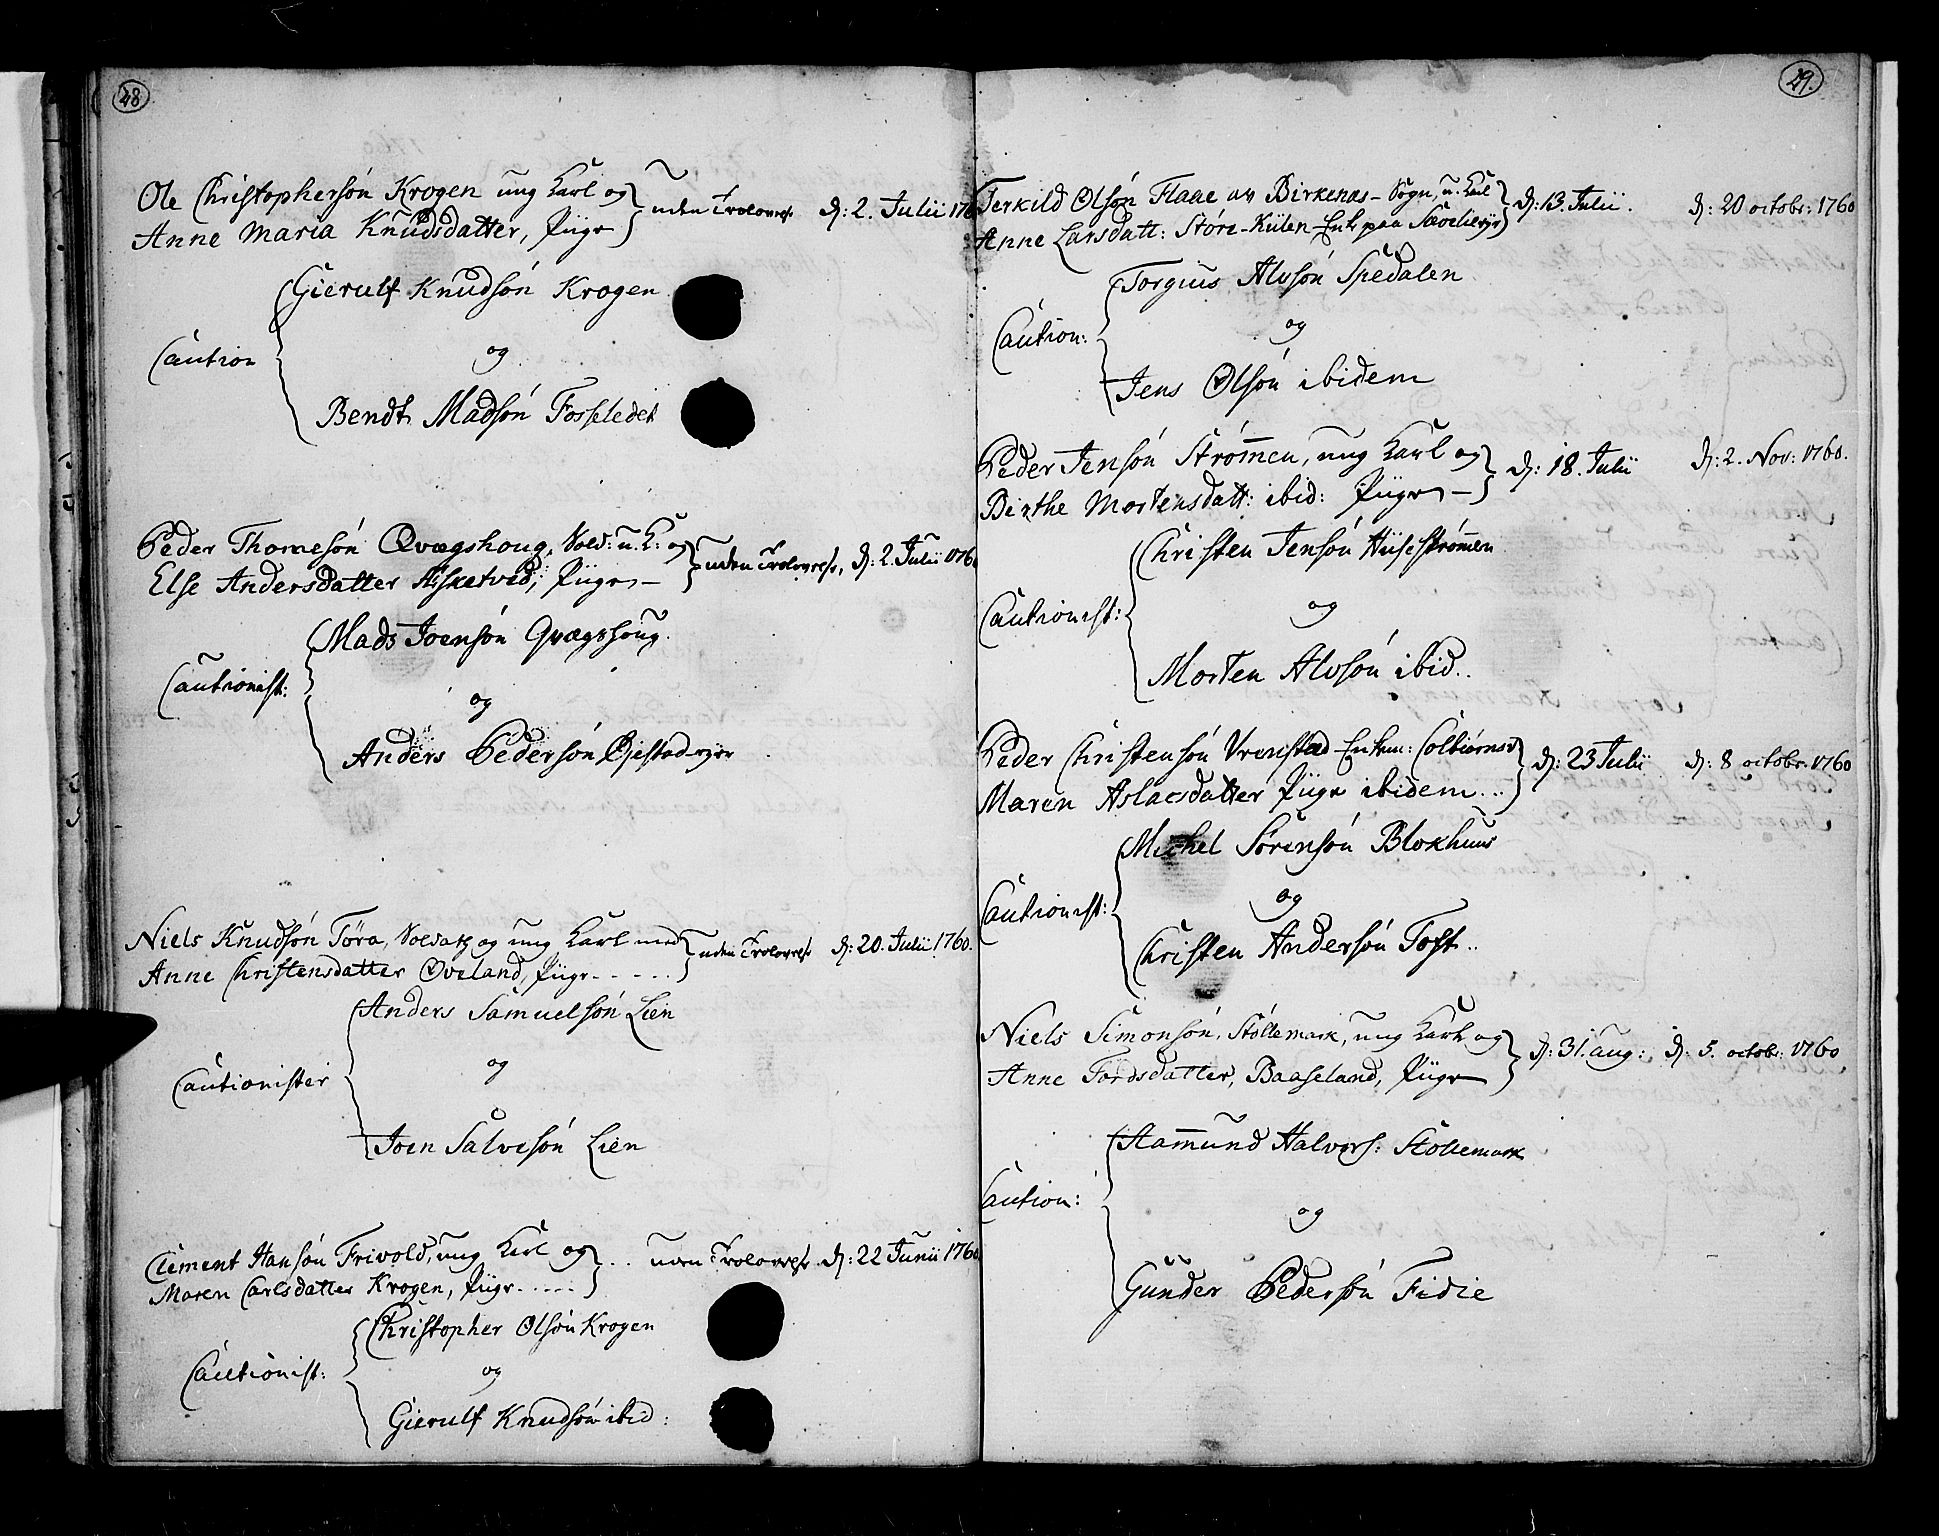 48
Ole Christophersøn Krogen ung Karl og
Anne Maria Knudsdatter, Piige
uden Trolovelse d: 2. Julii 176
Caution
Gierulf Knudsøn Krogen
og
Bendt Madsøn Fosseledet
Peder Thomesøn Qvægshoug, Sold: u. K: og
Else Andersdatter Æsketved, Piige
uden Trolovelse, d: 2. Julii 176
Cautionist:
Mads Joensøn Qvægshoug
og
Anders Pedersøn
Niels Knudsøn Töra, Soldat og ung Karl med
Anne Christensdatter Øveland, Piige
uden Trolovelse d: 20. Julii 1760.
Cautionister
Anders Samuelsøn Lien
og
Joen Salvesøn Lien
Clement Hansøn Frivold, ung Karl og
Maren Carlsdatter Krogen, Piige
uden Trolovelse d: 22 Junii 1760
Cautionist:
Christopher Olsøn Krogen
og
Gierulf Knudsøn ibid:
49.
Terkild Olsøn Flaae av Birkenæs-Sogn, u. Karl
Anne Larsdatt: Störe-Kiilen-Enke paa
d: 13. Julii. d: 20 octobr: 1760
Caution:
Torgius Alvsøn Spedalen
og
Jens Olsøn ibidem
Peder Jensøn Strømen, ung Karl og
Birthe Mortensdatt: ibid: Piige
d: 18. Julii d: 2. Nov: 1760.
Cautionist:
Christen Jensøn Huusestrømen
og
Morten Alvsøn ibid.
Peder Christensøn Vrenstad Enkem: Colbiørnsv
Maren Aslacsdatter Piige ibidem
d: 23 Julii d: 8 octobr. 1760
Cautionist:
Michel Sörensøn Blokhuus
og
Christen Andersøn Toft
Niels Simonsøn, Støllemark, ung Karl og
Anne Tordsdatter, Baaseland, Piige
d: 31. aug: d: 5. octobr: 1760
Caution:
Aamund Halvors: Støllemark
og
Gunder Pedersøn Fidie